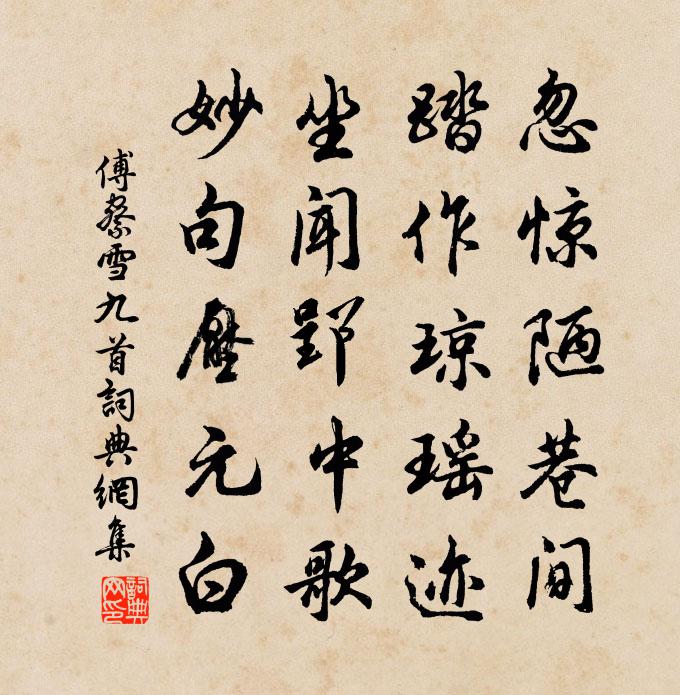 忽惊陋巷间
踏作琼瑶迹
坐闻郢中歌
妙句压元白
傅察雪九首詞典網集
詞典網印